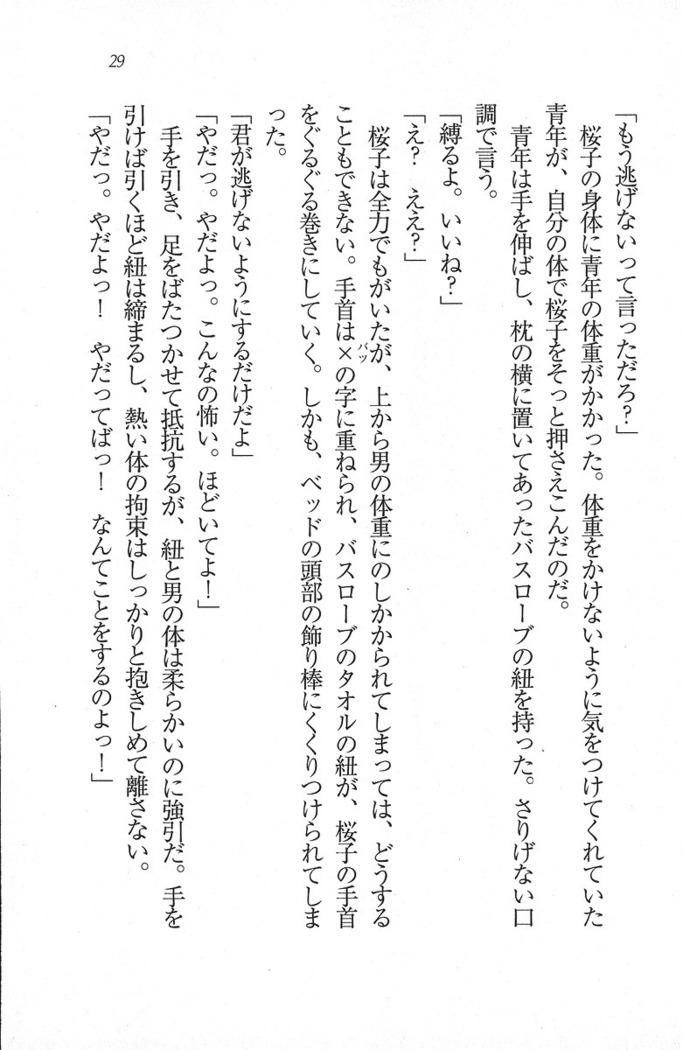 29
「もう逃げないって言っただろ？」
　桜子の身体に青年の体重がかかった。体重をかけないように気をつけてくれていた
青年が、自分の体で桜子をそっと押さえこんだのだ。
　青年は手を伸ばし、枕の横に置いてあったバスローブの紐を持った。さりげない口
調で言う。
「縛るよ。いいね？」
「え？　ええ？」
　桜子は全力でもがいたが、上から男の体重にのしかかられてしまっては、どうする
こともできない。手首は×バツの字に重ねられ、バスローブのタオルの紐が、桜子の手首
をぐるぐる巻きにしていく。しかも、ベッドの頭部の飾り棒にくくりつけられてしま
った。
「君が逃げないようにするだけだよ」
「やだっ。やだよっ。こんなの怖い。ほどいてよ！」
　手を引き、足をばたつかせて抵抗するが、紐と男の体は柔らかいのに強引だ。手を
引けば引くほど紐は締まるし、熱い体の拘束はしっかりと抱きしめて離さない。
「やだっ。やだよっ！　やだってばっ！　なんてことをするのよっ！」